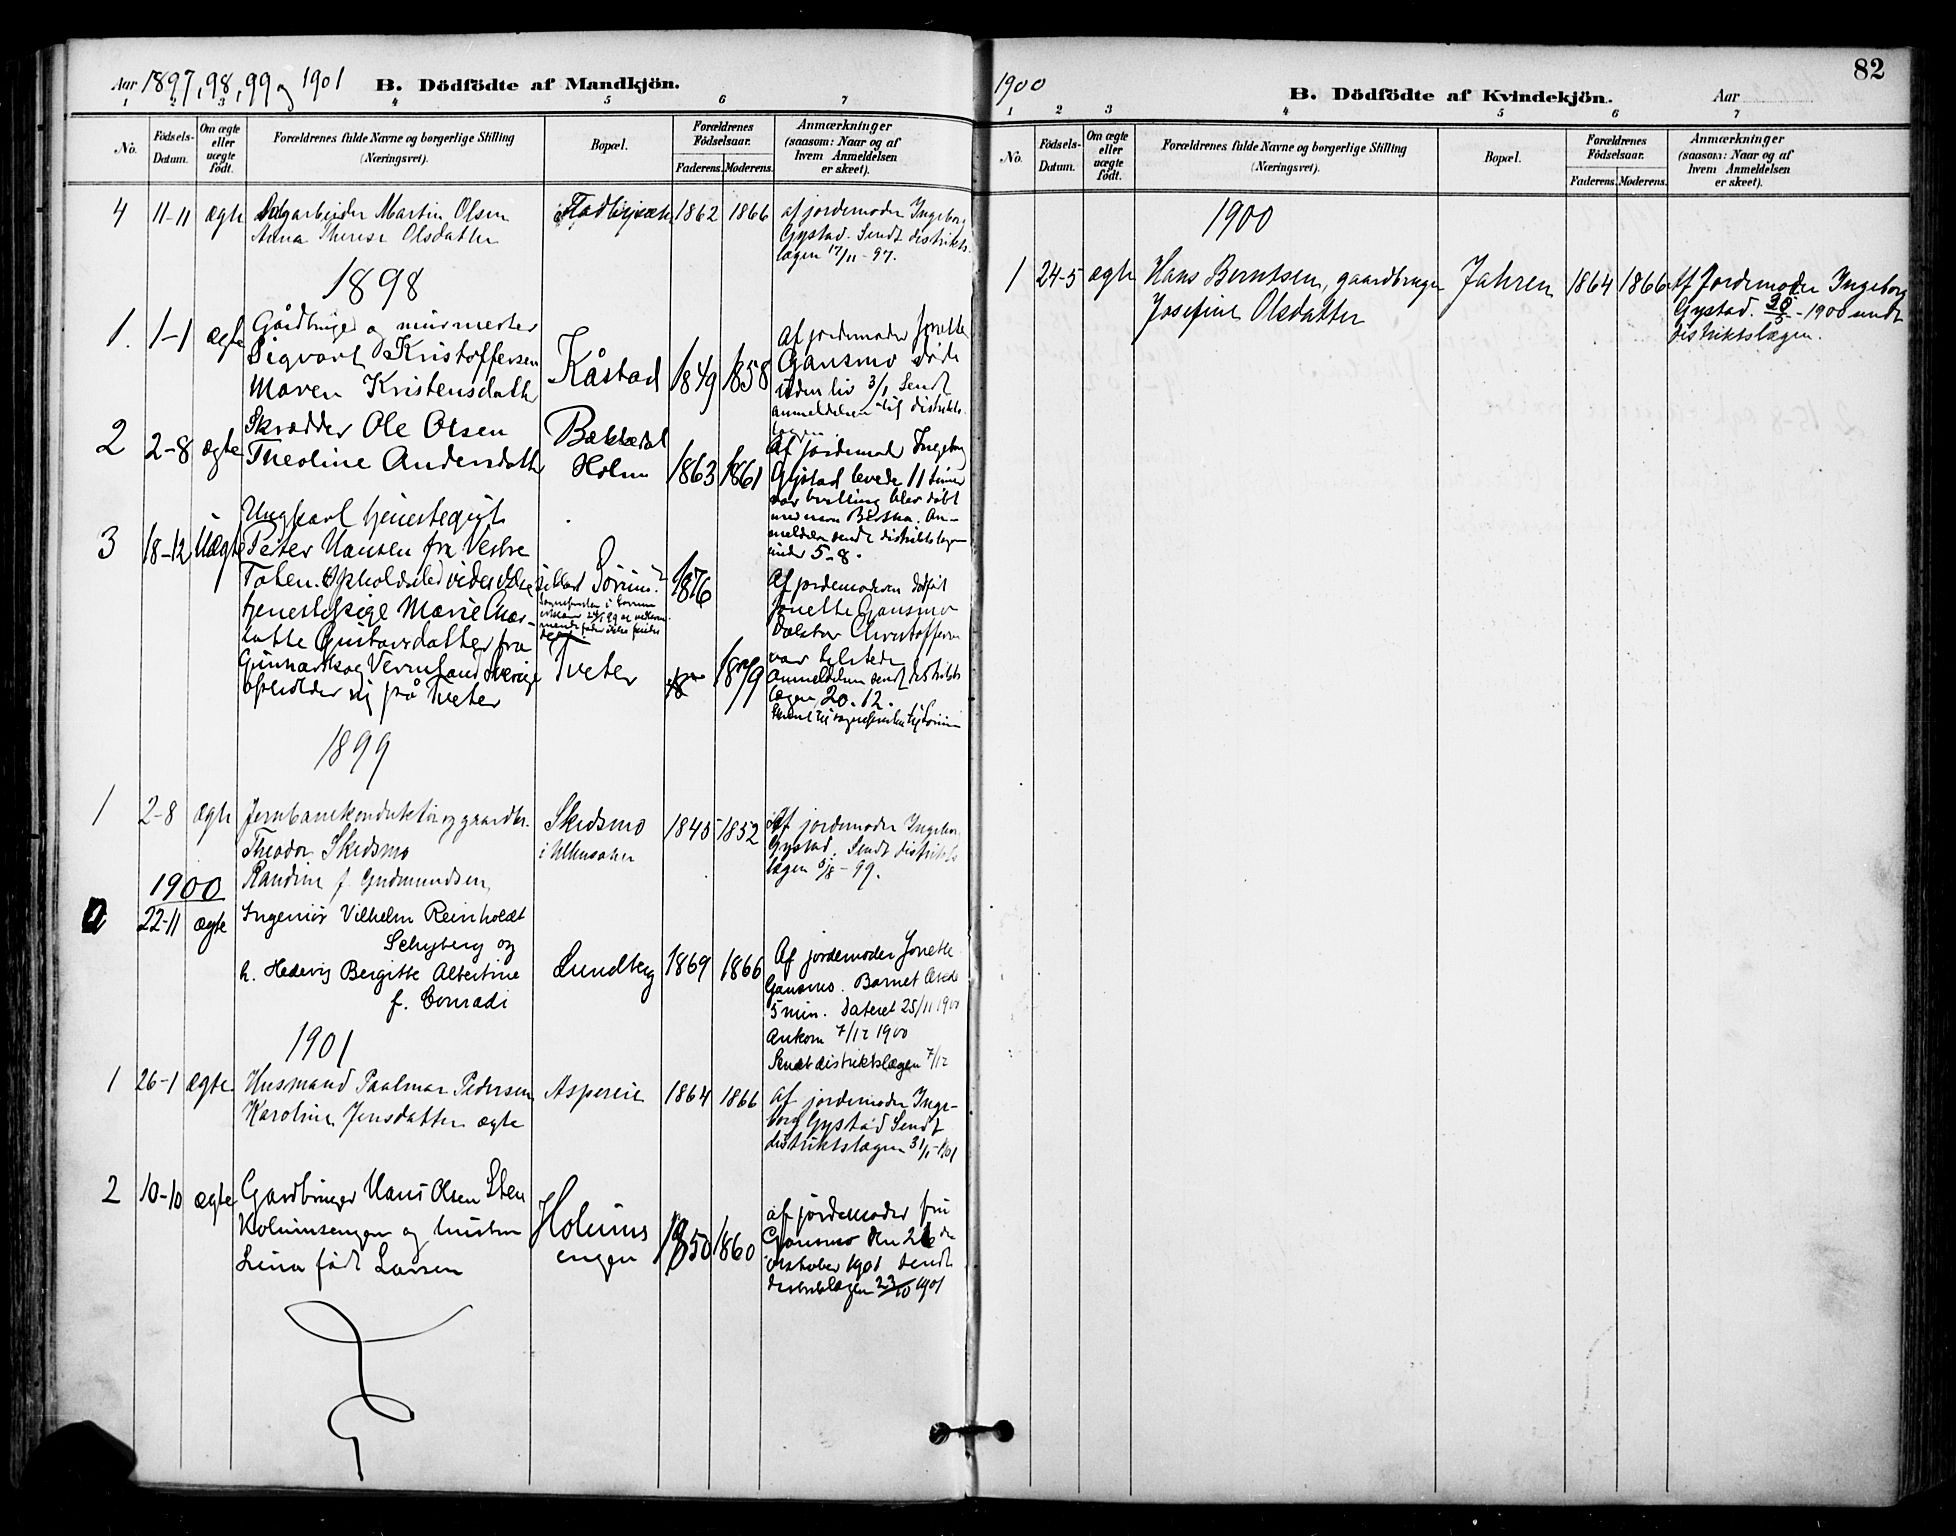 Aar 1897, 98, 99 og 1901
B. Dödfödte af Mandkjön.
1 2 3 4 5 6 7
No.
Födsels-Datum.
Om ægte eller uægte födt.
Forældrenes fulde Navne og borgerlige Stilling (Næringsvei).
Bopæl.
Forældrenes Födselsaar.
Faderens. Moderens.
Anmærkninger (saasom: Naar og af hvem Anmeldelsen er skeet).
4 11-11 ægte Dagarbeider Martin Olsen 1862 1866
Anna Therese Olsdatter
af jordemoder Ingeborg
Gystad. Sendt distrikts
lægen 17/11-97.
1898
1. 1-1 ægte Gårdbruger og murmester
Sigvart Kristoffersen
Maren Kristensdatter
Kåstad 1849 1858
Af jordemoder Jonette
Gansmo døde
uden liv 3/1 Sendt
anmeldelsen til distrikts-
lægen
2 2-8 ægte Skrædder Ole Olsen
Theoline Andersdatter
Holm 1863 1861
Af jordemoder Ingeborg
Gystad levede 11 timer
var tvilling blev døbt
An-
meldelsen sendt distriktslægen
under 5-8.
3 18-12 Uægte Ungkarl tjenestegut
Peter Hansen fra Vestre
Toten. Opholdsted vides ikke
sikkert Sörum? 1876
tjenestepige Marie Char-
lotte Gustavsdatter fra
Gunnarskog Vermland Sverige
opholder sig på Tveter
Tveter 18 1879
Af jordemoderen
Jonette Gansmo
Doktor Christoffersen
var tilstede
Anmeldelsen sendt distrikts
lægen 20.12.
1899
1 2-8 ægte Jernbanekonduktör og gaardbr.
Theodor Skedsmo
Randine f. Gudmundsen
Skedsmo
i Ullensaker
1845 1852
Af jordemoder Ingeborg
Gystad. Sendt distrikts
lægen 5/8-99.
1900
22-11 ægte Ingeniør Vilhelm Reinholdt
Schyberg og
h. Hedevig Bergitte Albertine
f. Conradi
Lundberg 1869 1866
Af jordemoder Jonette
Gansmo. Barnet levede
5 min. Dateret 25/11 1900
Ankom 7/12 1900
Sendt distriktslægen 7/12
1901
1 26-1 ægte Husmand Paalmar Pedersen
Karoline Jensdatter ægte
Aspereie 1864 1866
Af jordemoder Inge-
borg Gystad Sendt
distriktslægen 31/1-1901
2 10-10 ægte Gardbruger Hans Olsen Sten
Holumsengen og hustru
Lina født Larsen
Holums
engen
1850 1860
af jordemoder fru
Gansmo den 21de
october 1901 sendt
distriktslægen 23/10 1901
1900
B. Dödfödte af Kvindekjön.
Aar
82
1 2 3 4 5 6 7
No.
Födsels-Datum.
Om ægte eller uægte födt.
Forældrenes fulde Navne og borgerlige Stilling (Næringsvei).
Bopæl.
Forældrenes Födselsaar.
Faderens. Moderens.
Anmærkninger (saasom: Naar og af hvem Anmeldelsen er skeet).
1900
1 24-5 ægte Hans Berntsen, gaardbruger Jahren 1864 1866
Josefine Olsdatter
Af Jordemoder Ingeborg
Gystad. 30/5-1900 sendt
distriktslægen.